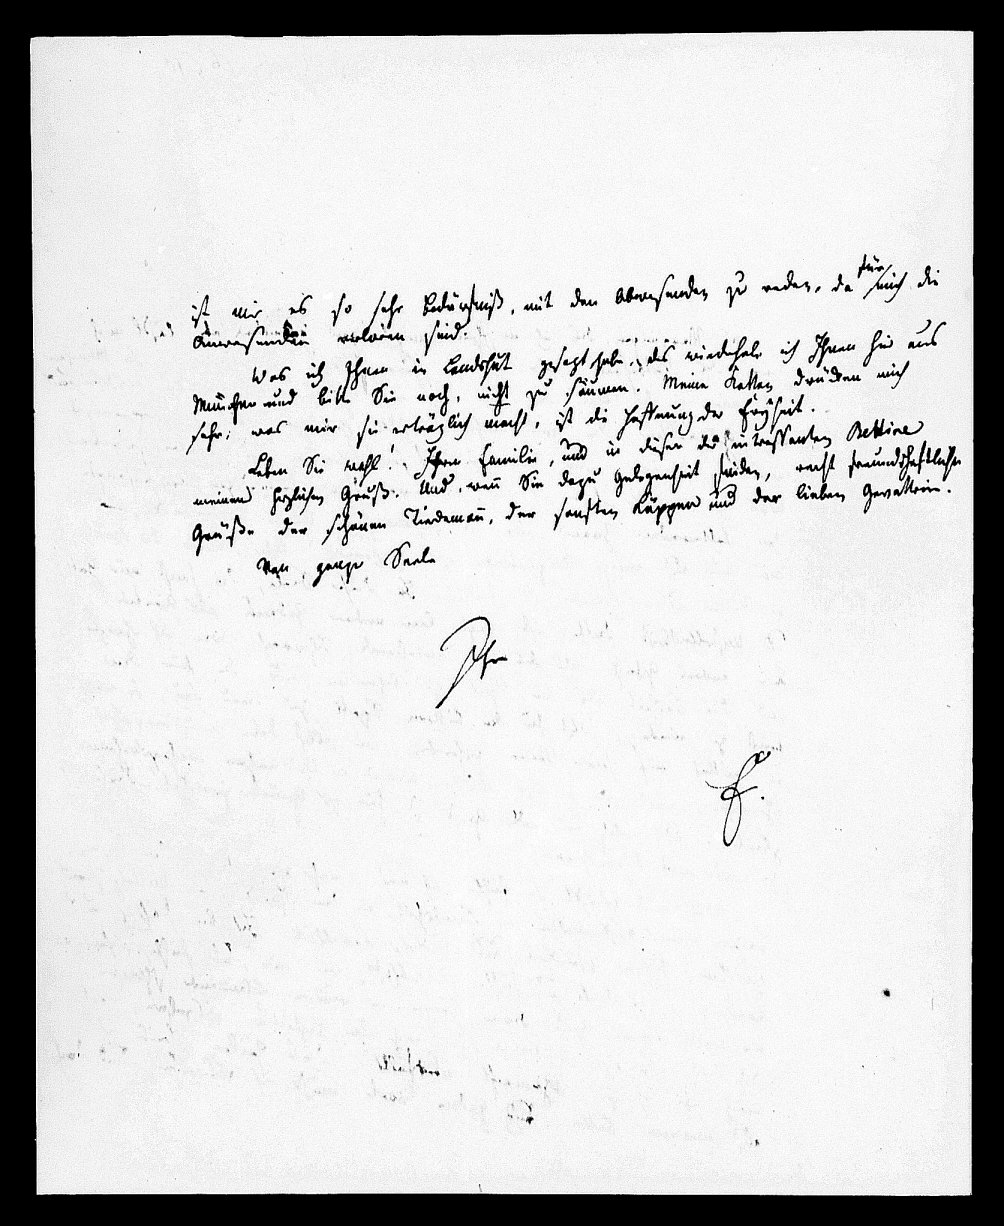 ist mir es so sehr Bedürfniß, mit den Abwesenden zu reden, da für mich die
Anwesenden verloren sind.
Was ich Ihnen in Landshut gesagt habe, das wiederhole ich Ihnen hier aus
München und bitte Sie noch, nicht zu säumen. Meine Ketten drücken mich
sehr; was mir sie erträglich macht, ist die Hoffnung der Freyheit.
Leben Sie wohl! Ihrer Familie, und in dieser der intressanten Bettine
meinen herzlichen Gruß. Und, wenn Sie dazu Gelegenheit finden, recht freundschaftliche
Grüße der schönen Tiedemañ, der sanften Köppen und der lieben Gevatterin.
Von ganzer Seele
Ihr
F.